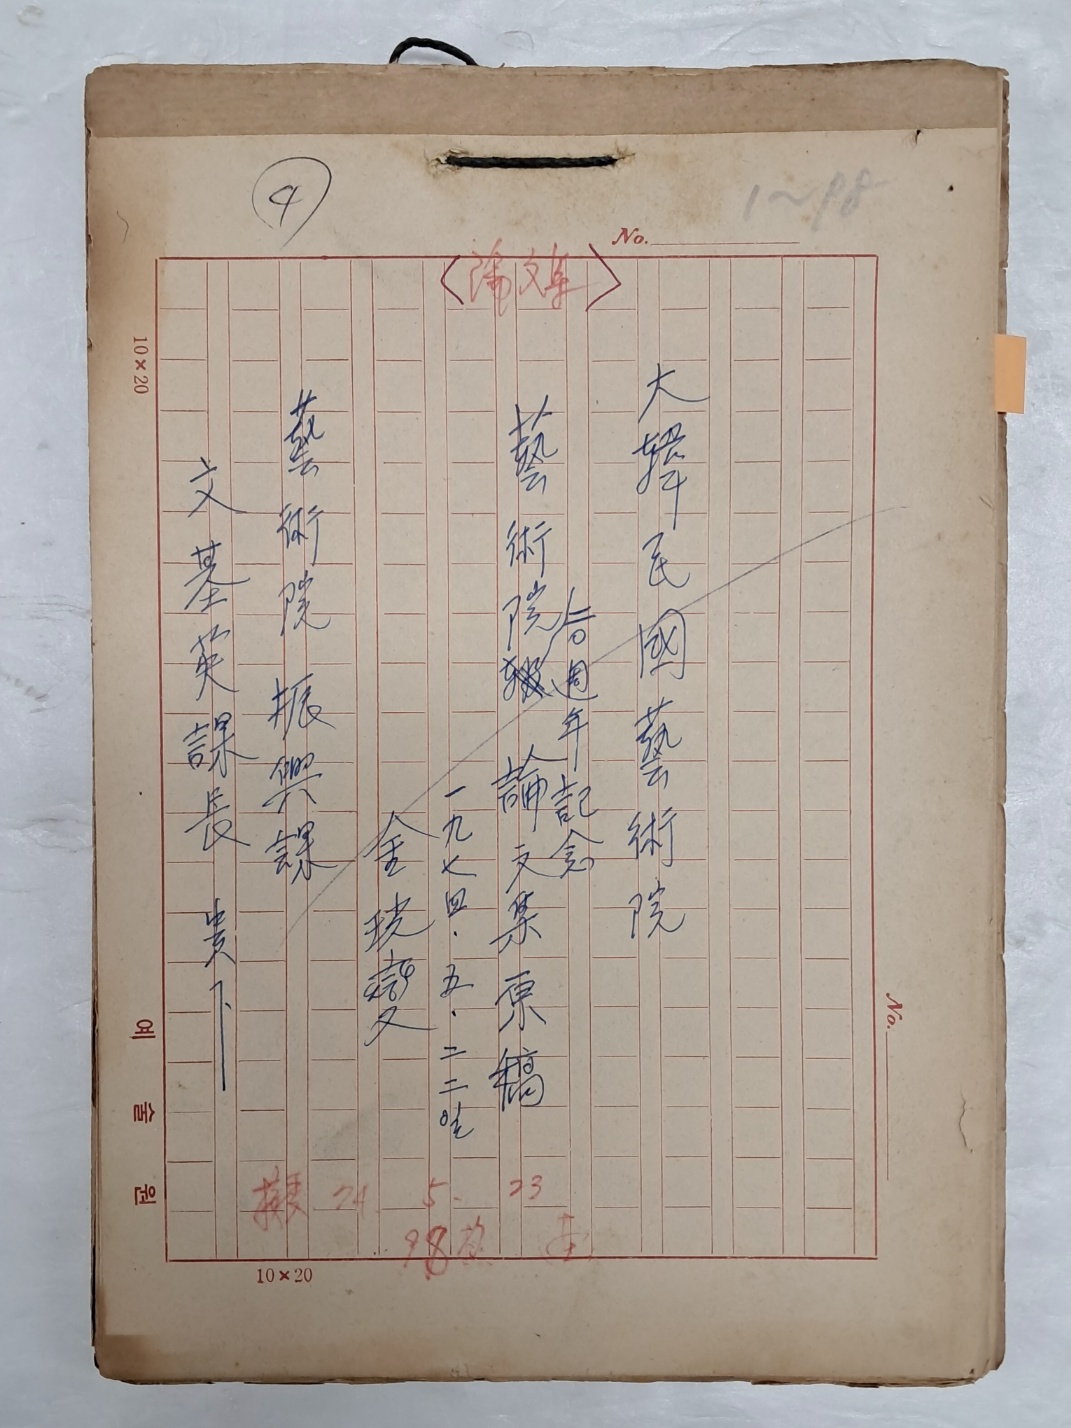 4
1~98
No.
〈論文集〉
大韓民國藝術院
卄週年記念
藝術院 論文集原稿
一九七四.五.二二
金珖燮
藝術院 振興課
文基英課長 貴下
接受 74. 5. 23
98
10×20
예술원
No.
10×20